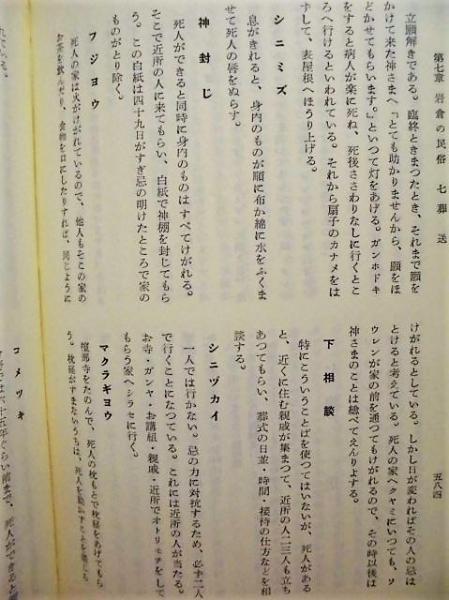 第七章 岩倉の民俗 七 葬送
五八四
立願解きである。臨終ときまつたとき、それまで願を
かけて来た神さまへ『とても助かりませんから、願をほ
どかせてもらいます。』といつて灯をあげる。ガンホドキ
をすると病人が楽に死ね、死後さわりなしに行くとこ
ろへ行けるといわれている。それから扇子のカナメをは
ずして、表屋根へほうり上げる。
シニミズ
息がきれると、身内のものが順に布か綿に水をふくま
せて死人の唇をぬらす。
神封じ
死人ができると同時に身内のものはすべてけがれる。
そこで近所の人に来てもらい、白紙で神棚を封じてもら
う。この白紙は四十九日がすぎ忌の明けたところで家の
ものがとり除く。
フジヨウ
死人の家は火がけがれているので、他人もそこの家の
お茶を飲んだり、食物を口にしたりすれば、同じように
けがれるとしている。しかし日が変わればその人の忌は
とけると考えている。死人の家へクヤミにいつても、ソ
ウレンが家の前を通つてもけがれるので、その時以後は
神さまのことは総べてえんりよする。
下相談
特にこういうことばを使つてはいないが、死人がある
と、近くに住む親戚が集まつて、近所の人二三人も立ち
あつてもらい、葬式の日並・時間・接待の仕方などを相
談する。
シニヅカイ
一人では行かない。忌の力に対抗するため、必ず二人
で行くことになつている。これには近所の人が当たる。
お寺・ガンヤ・お講組・親戚・近所でオトリモチをして
もらう家へシラセに行く。
マクラギヨウ
檀那寺をたのんで、死人の枕もとで枕経をあげてもら
う。枕経がすまないうちは、死人を動かすことを
コメツキ